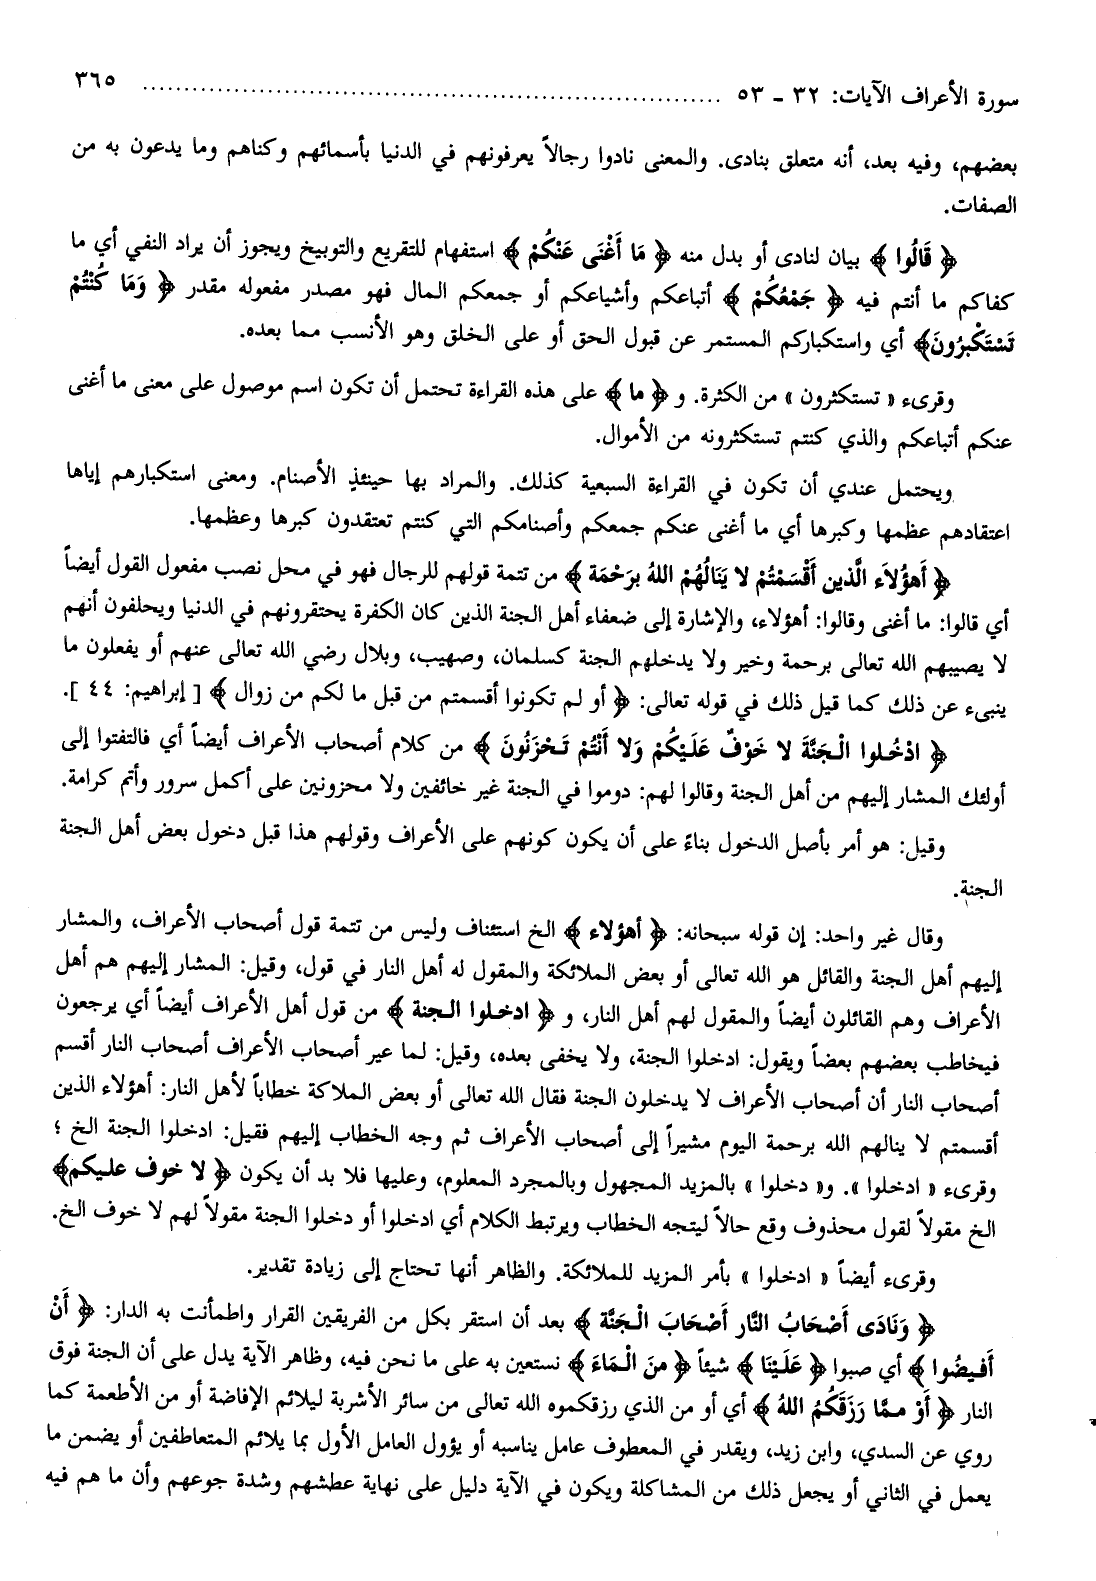 سورة الأعراف الآيات: ٣٢ ـ ٥٣ ........................................................................ ٣٦٥
بعضهم، وفيه بعد، أنه متعلق بنادى. والمعنى نادوا رجالاً يعرفونهم في الدنيا بأسمائهم وكناهم وما يدعون به من
الصفات.
﴿ قَالُوا ﴾ بيان لنادى أو بدل منه ﴿ مَا أَغْنَى عَنْكُمْ ﴾ استفهام للتقريع والتوبيخ ويجوز أن يراد النفي أي ما
كفاكم ما أنتم فيه ﴿ جَمْعُكُمْ ﴾ أتباعكم وأشياعكم أو جمعكم المال فهو مصدر مفعوله مقدر ﴿ وَمَا كُنْتُمْ
تَسْتَكْبِرُونَ﴾ أي واستكباركم المستمر عن قبول الحق أو على الخلق وهو الأنسب مما بعده.
وقرىء « تستكثرون » من الكثرة. و ﴿ ما ﴾ على هذه القراءة تحتمل أن تكون اسم موصول على معنى ما أغنى
عنكم أتباعكم والذي كنتم تستكثرونه من الأموال.
ويحتمل عندي أن تكون في القراءة السبعية كذلك. والمراد بها حينئذٍ الأصنام. ومعنى استكبارهم إياها
اعتقادهم عظمها وكبرها أي ما أغنى عنكم جمعكم وأصنامكم التي كنتم تعتقدون كبرها وعظمها.
﴿ أَهؤُلاَء الَّذين أَقْسَمْتُمْ لا يَنَالُهُمْ اللهُ برَحْمَة ﴾ من تتمة قولهم للرجال فهو في محل نصب مفعول القول أيضاً
أي قالوا: ما أغنى وقالوا: أهؤلاء، والإشارة إلى ضعفاء أهل الجنة الذين كان الكفرة يحتقرونهم في الدنيا ويحلفون أنهم
لا يصيبهم الله تعالى برحمة وخير ولا يدخلهم الجنة كسلمان، وصهيب، وبلال رضي الله تعالى عنهم أو يفعلون ما
ينبىء عن ذلك كما قيل ذلك في قوله تعالى: ﴿ أو لم تكونوا أقسمتم من قبل ما لكم من زوال ﴾ [ إبراهيم: ٤٤ ].
﴿ ادْخُلوا الْجَنَّةَ لا خَوْفٌ عَلَيْكُمْ وَلا أَنْتُمْ تَحْزَنُونَ ﴾ من كلام أصحاب الأعراف أيضاً أي فالتفتوا إلى
أولئك المشار إليهم من أهل الجنة وقالوا لهم: دوموا في الجنة غير خائفين ولا محزونين على أكمل سرور وأتم كرامة.
وقيل: هو أمر بأصل الدخول بناءً على أن يكون كونهم على الأعراف وقولهم هذا قبل دخول بعض أهل الجنة
الجنة.
وقال غير واحد: إن قوله سبحانه: ﴿ أهؤلاء ﴾ الخ استئناف وليس من تتمة قول أصحاب الأعراف، والمشار
إليهم أهل الجنة والقائل هو الله تعالى أو بعض الملائكة والمقول له أهل النار في قول، وقيل: المشار إليهم هم أهل
الأعراف وهم القائلون أيضاً والمقول لهم أهل النار، و ﴿ ادخلوا الجنة ﴾ من قول أهل الأعراف أيضاً أي يرجعون
فيخاطب بعضهم بعضاً ويقول: ادخلوا الجنة، ولا يخفى بعده، وقيل: لما عير أصحاب الأعراف أصحاب النار أقسم
أصحاب النار أن أصحاب الأعراف لا يدخلون الجنة فقال الله تعالى أو بعض الملاكة خطاباً لأهل النار: أهؤلاء الذين
أقسمتم لا ينالهم الله برحمة اليوم مشيراً إلى أصحاب الأعراف ثم وجه الخطاب إليهم فقيل: ادخلوا الجنة الخ ؛
وقرىء « ادخلوا ». و« دخلوا » بالمزيد المجهول وبالمجرد المعلوم، وعليها فلا بد أن يكون ﴿ لا خوف عليكم﴾
الخ مقولاً لقول محذوف وقع حالاً ليتجه الخطاب ويرتبط الكلام أي ادخلوا أو دخلوا الجنة مقولاً لهم لا خوف الخ.
وقرىء أيضاً « ادخلوا » بأمر المزيد للملائكة. والظاهر أنها تحتاج إلى زيادة تقدير.
﴿ وَنَادَى أَصْحَابُ النَّار أَصْحَابَ الْجَنَّة ﴾ بعد أن استقر بكل من الفريقين القرار واطمأنت به الدار: ﴿ أَنْ
أَفيضُوا ﴾ أي صبوا ﴿ عَلَيْنَا ﴾ شيئاً ﴿ منَ الْمَاءَ ﴾ نستعين به على ما نحن فيه، وظاهر الآية يدل على أن الجنة فوق
النار ﴿ أَوْ ممَّا رَزَقَكُمُ اللهُ ﴾ أي أو من الذي رزقكموه الله تعالى من سائر الأشربة ليلائم الإفاضة أو من الأطعمة كما
روي عن السدي، وابن زيد، ويقدر في المعطوف عامل يناسبه أو يؤول العامل الأول بما يلائم المتعاطفين أو يضمن ما
يعمل في الثاني أو يجعل ذلك من المشاكلة ويكون في الآية دليل على نهاية عطشهم وشدة جوعهم وأن ما هم فيه